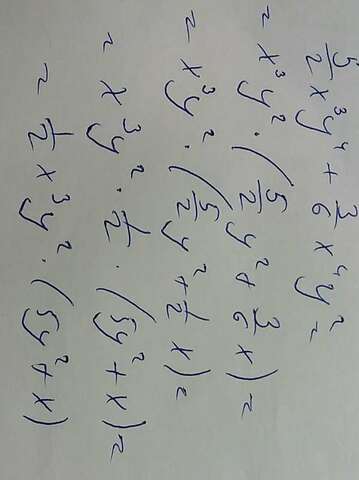 5/2 x³y⁴ + 3/6 x⁴y² =
= x³y² · (5/2 y² + 3/6 x) =
= x³y² · (5/2 y² + 1/2 x) =
= x³y² · 1/2 · (5y² + x) =
= 1/2 x³y² · (5y² + x)